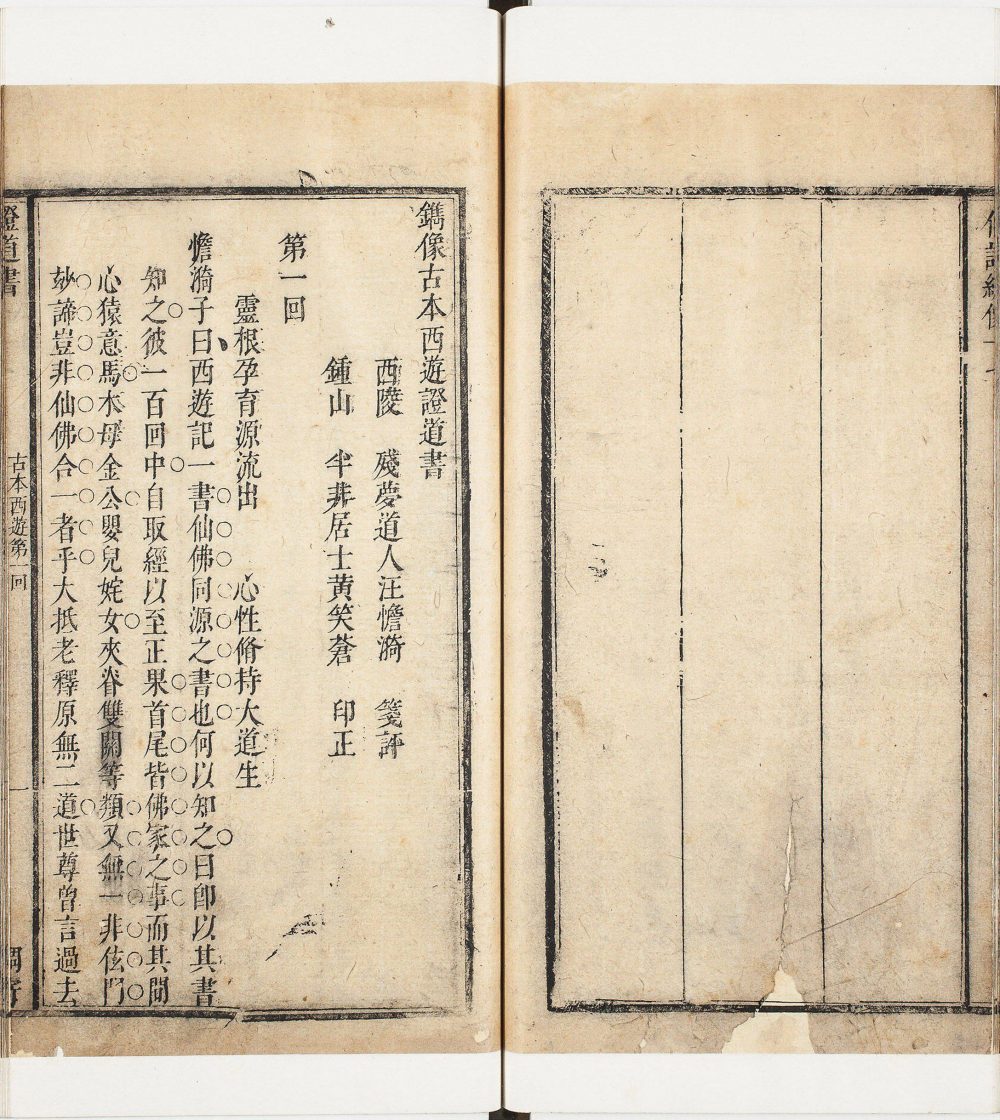 鐫像古本西遊證道書
西陵 殘夢道人汪憺漪 箋評
鍾山 半非居士黃笑蒼 印正
第一回
靈根孕育源流出 心性脩持大道生
憺漪子曰西遊記一書仙佛同源之書也何以知之曰卽以其書
知之彼一百回中自取經以至正果首尾皆佛家之事而其間
心猿意馬木母金公嬰兒姹女夾脊雙關等類又無一非伭門
玅諦豈非仙佛合一者乎大抵老釋原無二道世尊曾言過去
證道書
古本西遊第一回
一